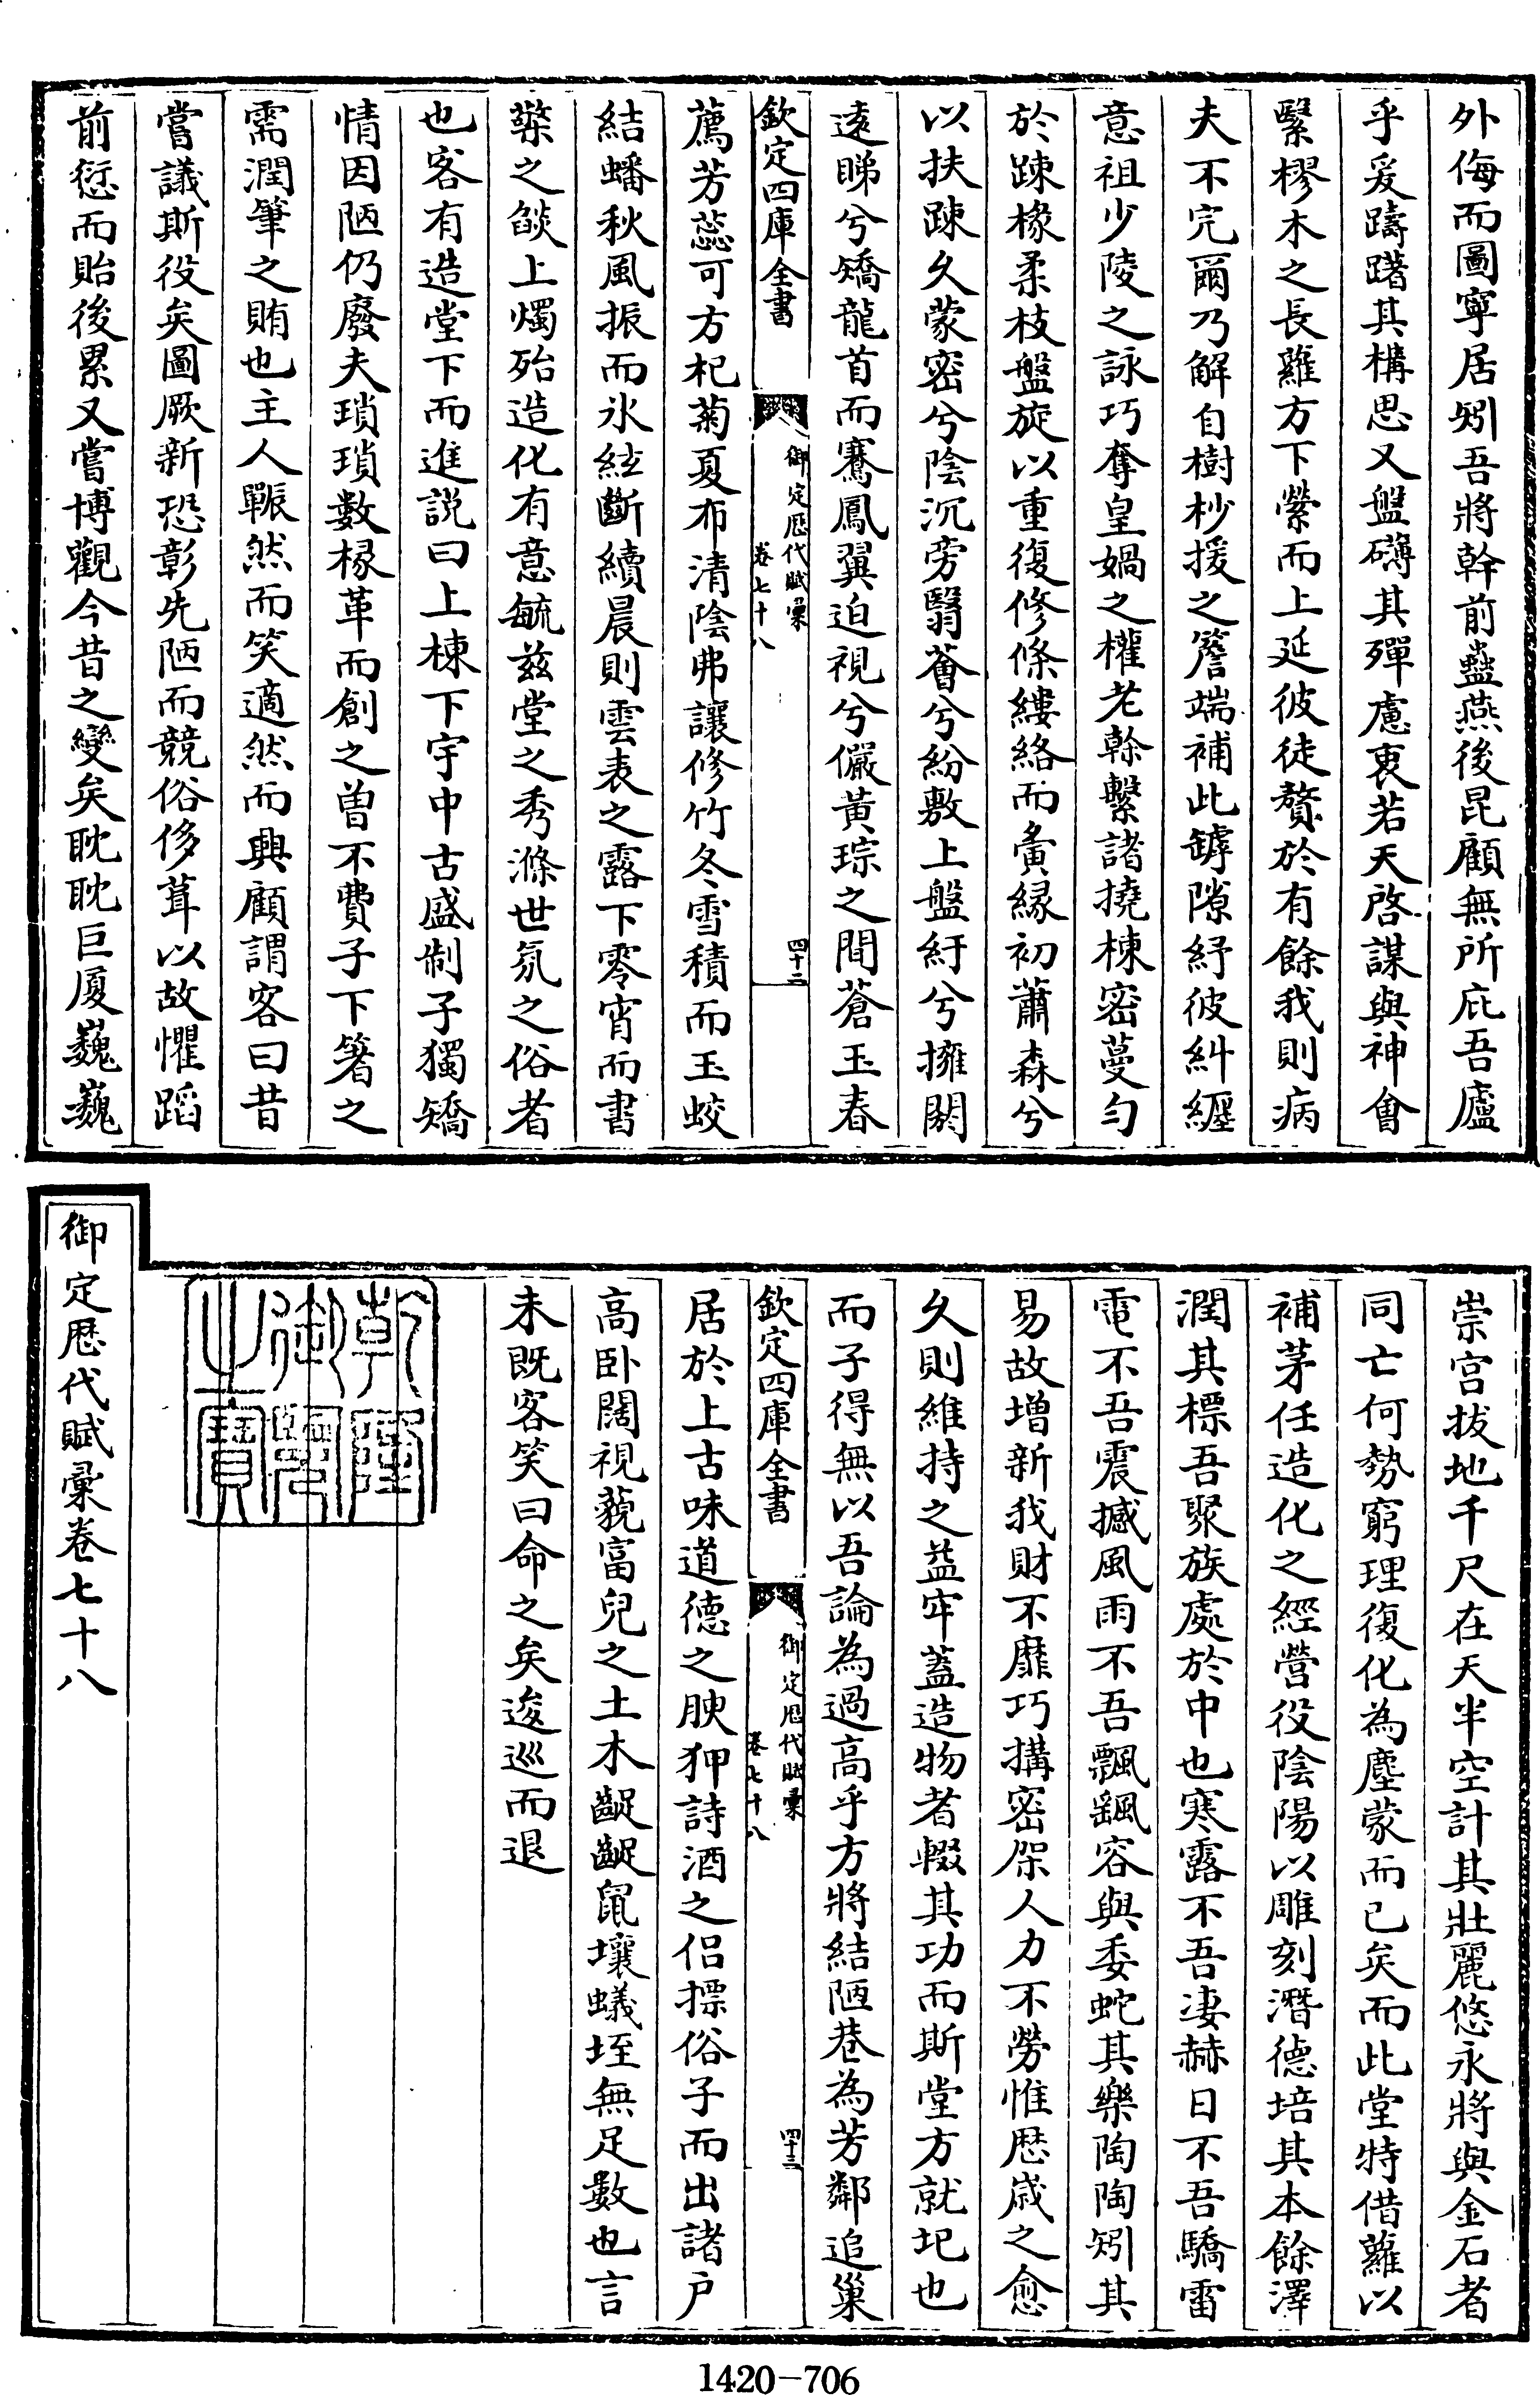 外侮而圖寧居矧吾將幹前蠱燕後昆顧無所庇吾廬
乎爰躊躇其構思又盤礴其殫慮衷若天啓謀與神會
繄樛木之長蘿方下縈而上延彼徒贅於有餘我則病
夫不完爾乃解自樹杪援之簷端補此罅隙紓彼糾纒
意祖少陵之詠巧奪皇媧之權老榦繫諸撓棟密蔓勻
於踈椽柔枝盤旋以重復修條縷絡而夤緣初蕭森兮
以扶踈久蒙密兮陰沉旁翳薈兮紛敷上盤紆兮擁閼
遠睇兮矯龍首而騫鳳翼迫視兮儼黄琮之間蒼玉春
欽定四庫全書
御定歴代賦彙
卷七十八
四十二
薦芳蕊可方杞菊夏布清陰弗讓修竹冬雪積而玉蛟
結蟠秋風振而氷絃斷續晨則雲表之露下零宵而書
檠之燄上燭殆造化有意毓兹堂之秀滌世氛之俗者
也客有造堂下而進説曰上棟下宇中古盛制子獨矯
情因陋仍廢夫瑣瑣數椽革而創之曽不費子下箸之
需潤筆之賄也主人囅然而笑適然而興顧謂客曰昔
嘗議斯役矣圖厥新恐彰先陋而競俗侈葺以故懼蹈
前愆而貽後累又嘗博觀今昔之變矣耽耽巨厦巍巍
崇宫拔地千尺在天半空計其壯麗悠永將與金石者
同亡何勢窮理復化為塵蒙而已矣而此堂特借蘿以
補茅任造化之經營役陰陽以雕刻濳德培其本餘澤
潤其標吾聚族處於中也寒露不吾凄赫日不吾驕雷
電不吾震撼風雨不吾飄颻容與委蛇其樂陶陶矧其
易故増新我財不靡巧搆密架人力不勞惟歴歲之愈
久則維持之益牢蓋造物者輟其功而斯堂方就圮也
而子得無以吾論為過高乎方將結陋巷為芳鄰追巢
欽定四庫全書
御定歴代賦彙
卷七十八
四十三
居於上古味道德之腴狎詩酒之侣摽俗子而出諸戶
高卧闊視藐富兒之土木齪齪鼠壤蟻垤無足數也言
未既客笑曰命之矣逡巡而退
乾隆
御覽
之寶
御定歴代賦彙卷七十八
1420-706